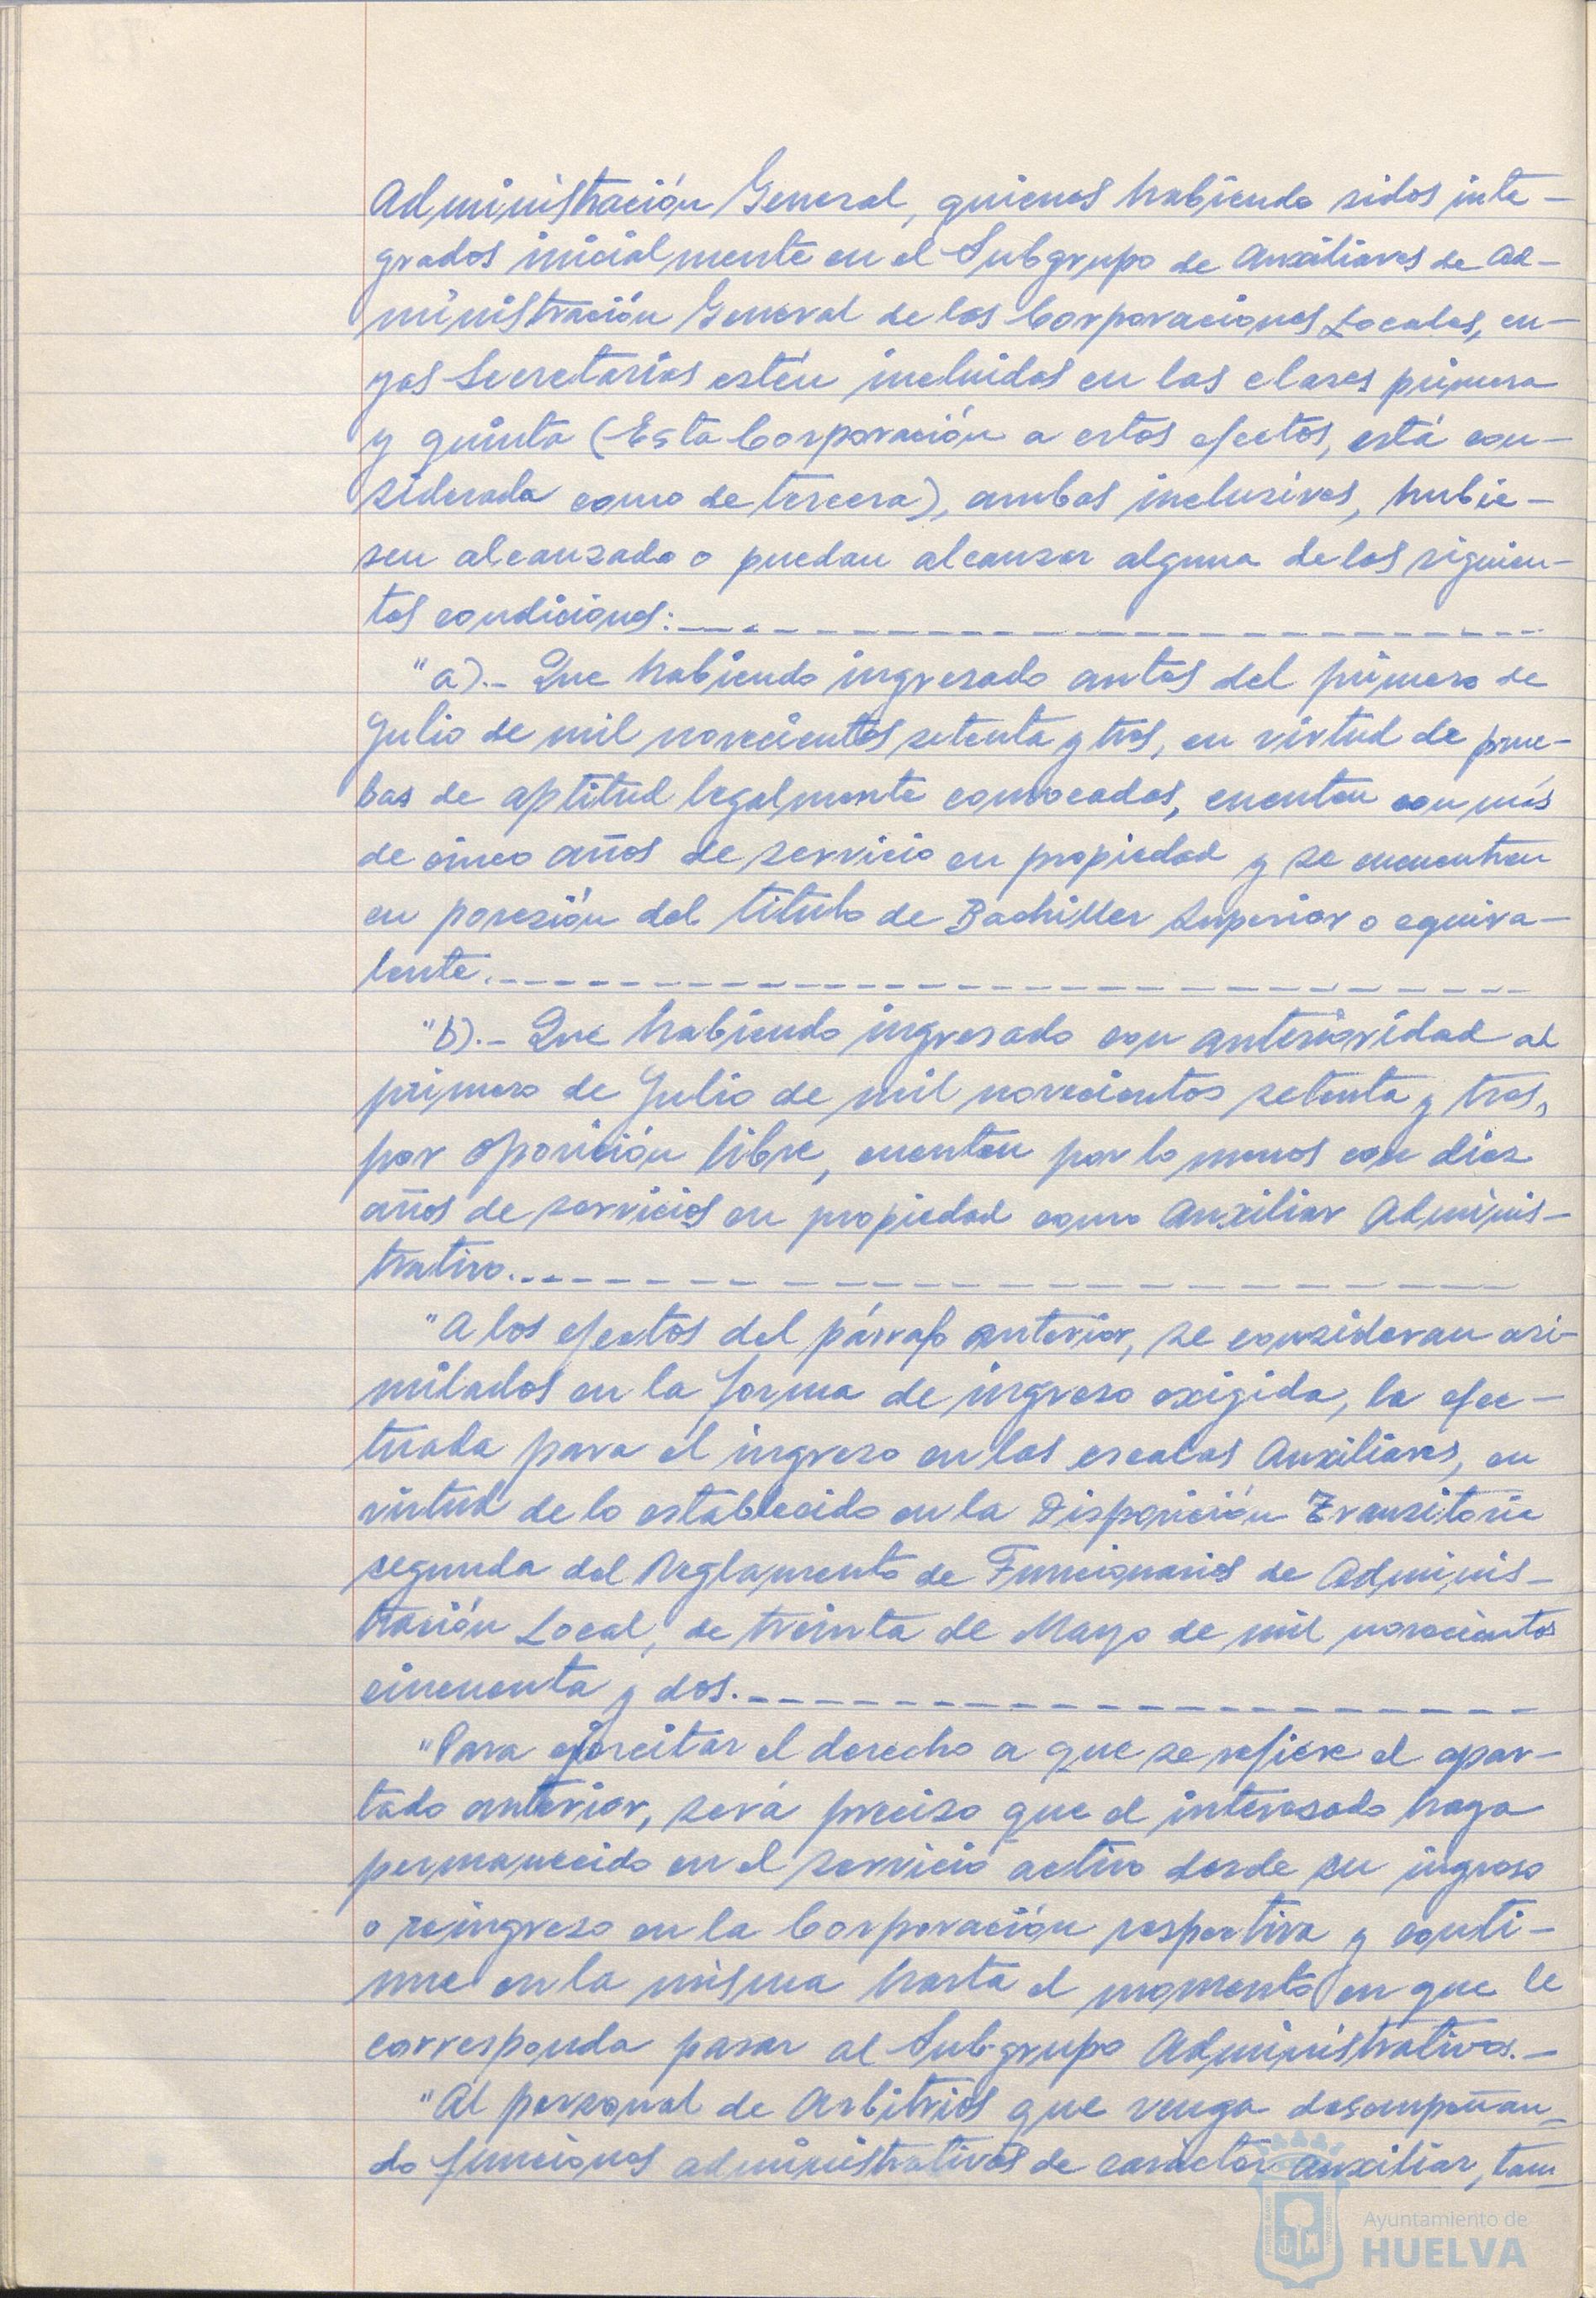 Administración General, quienes habiendo sidos inte-
grados inicialmente en el Subgrupo de Auxiliares de Ad-
ministración General de las Corporaciones Locales, cu-
yas Secretarías estén incluidas en las clases primera
y quinta (Esta Corporación a estos efectos, está con-
siderada como de tercera), ambas inclusives, hubie-
sen alcanzado o puedan alcanzar alguna de las siguien-
tes condiciones:
"a).- Que habiendo ingresado antes del primero de
Julio de mil novecientos setenta y tres, en virtud de prue-
bas de aptitud legalmente convocadas, cuenten con más
de cinco años de servicio en propiedad y se encuentren
en posesión del título de Bachiller Superior o equiva-
lente.
"b).- Que habiendo ingresado con anterioridad al
primero de Julio de mil novecientos setenta y tres,
por oposición libre, cuenten por lo menos con diez
años de servicios en propiedad como Auxiliar Adminis-
trativo.
"A los efectos del párrafo anterior, se consideran asi-
milados en la forma de ingreso exigida, la efec-
tuada para el ingreso en las escalas Auxiliares, en
virtud de lo establecido en la Disposición Transitoria
segunda del Reglamento de Funcionarios de Adminis-
tración Local, de treinta de Mayo de mil novecientos
cincuenta y dos.
"Para ejercitar el derecho a que se refiere el apar-
tado anterior, será preciso que el interesado haya
permanecido en el servicio activo desde su ingreso
o reingreso en la Corporación respectiva y conti-
nue en la misma hasta el momento en que le
corresponda pasar al Subgrupo Administrativos.-
"Al personal de Arbitrios que venga desempeñan-
do funciones administrativas de carácter auxiliar, tam-
Ayuntamiento de
HUELVA